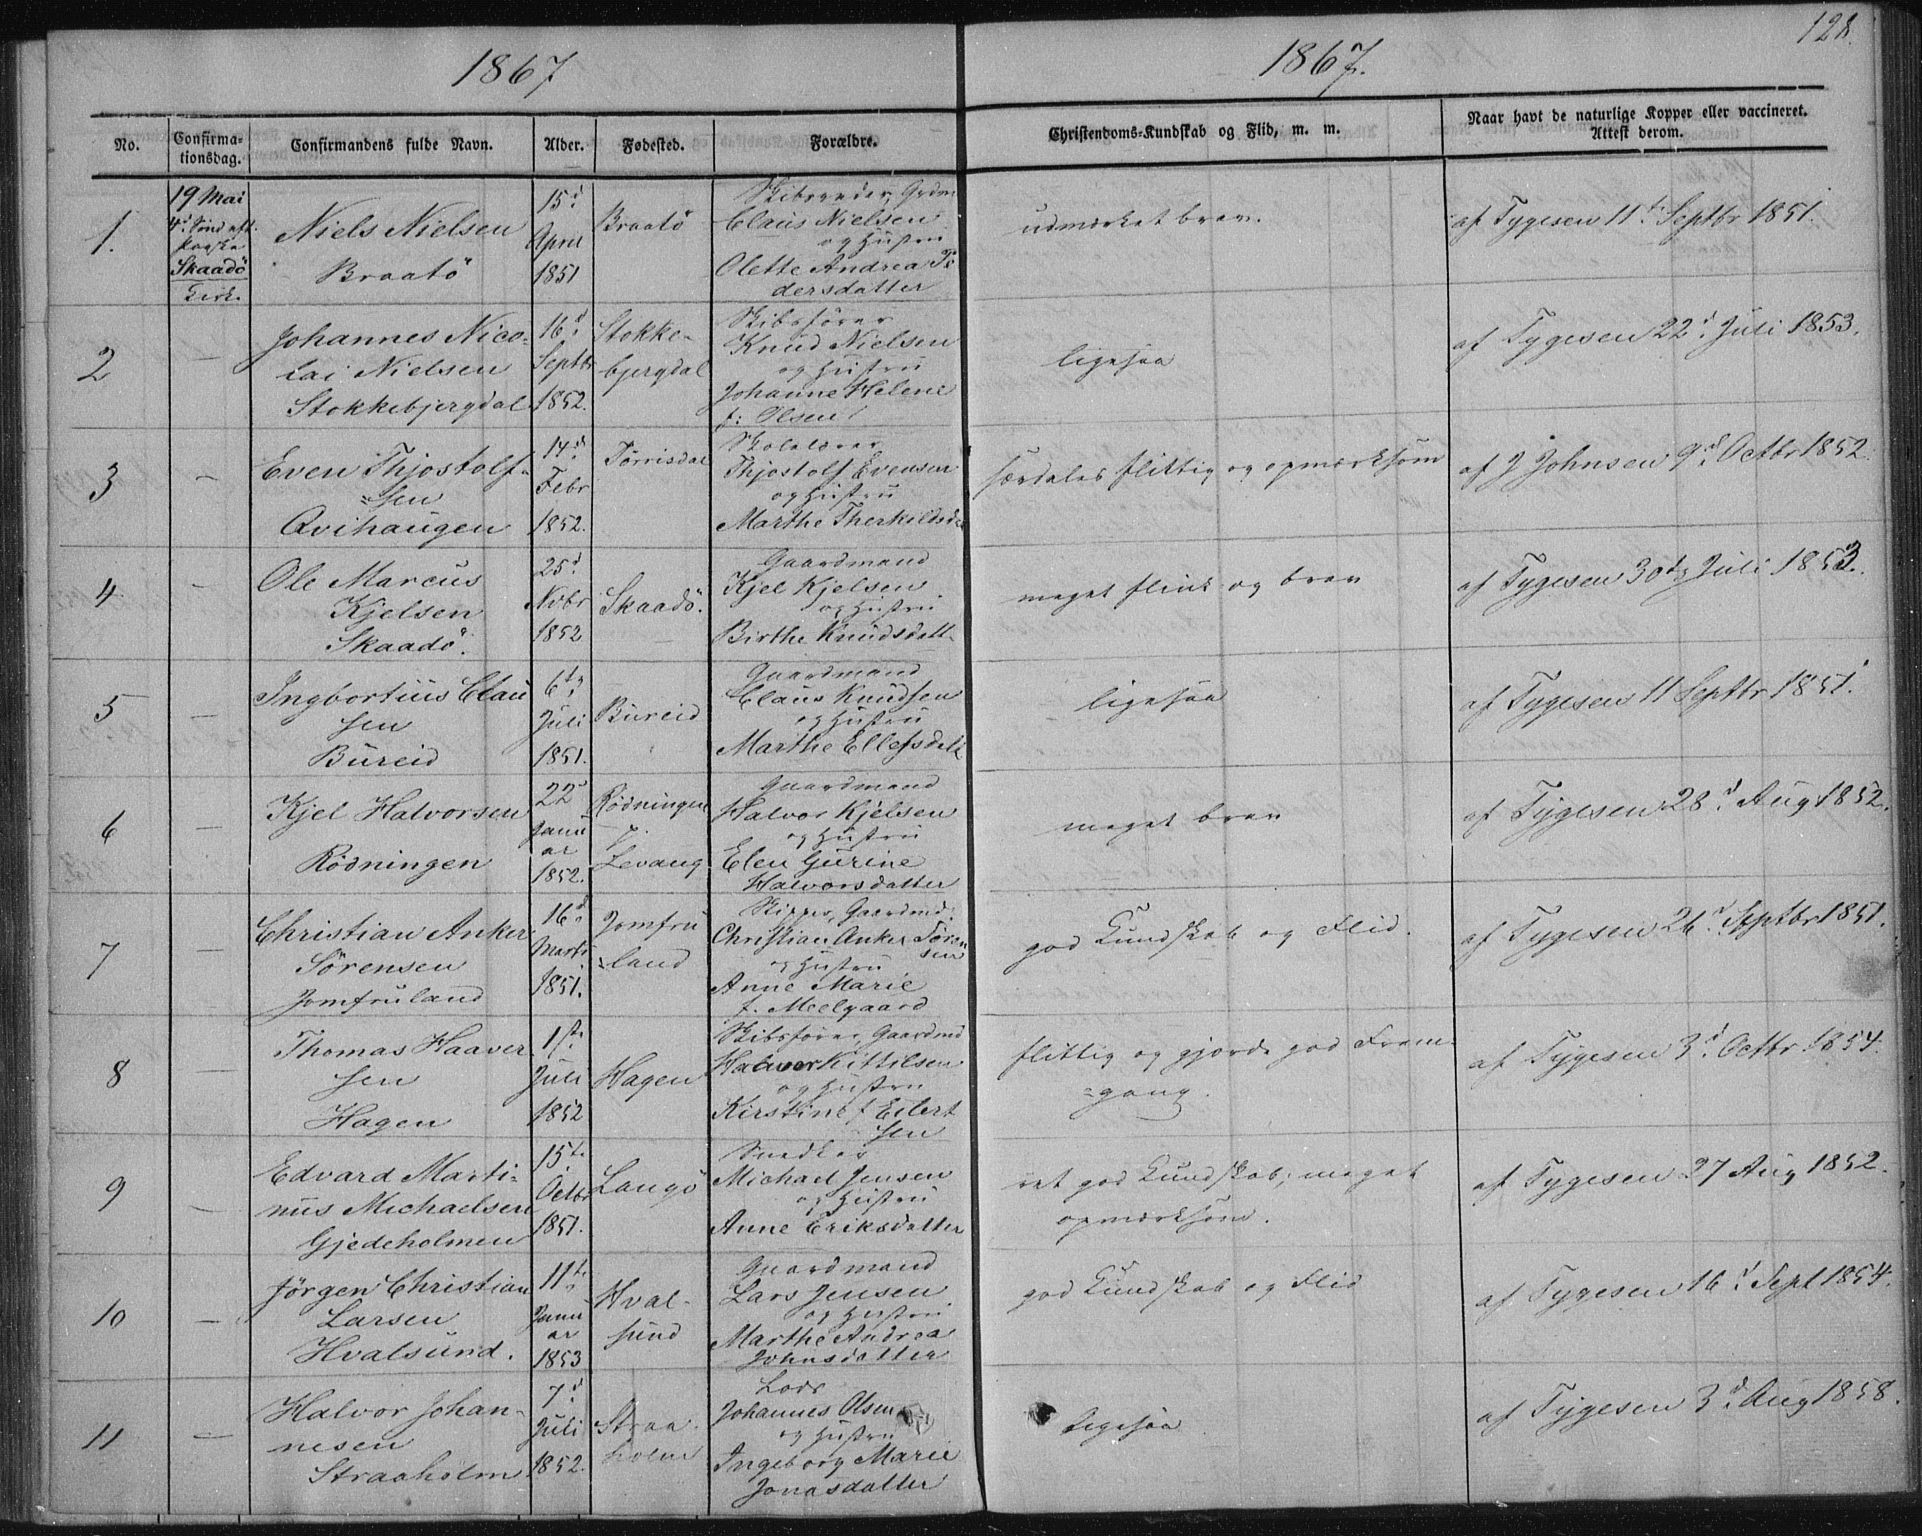 128.
1867
1867.
No.
Confirmationsdag.
Confirmandens fulde Navn.
Alder.
Fødested.
Forældre.
Christendoms-Kundskab og Flid, m. m.
Naar havt de naturlige Kopper eller vaccineret.
Attest derom.
1.
19 Mai
4d. Sönd. eft.
Paaske
Skaadö
Kirk.
Niels Nielsen
Braatö
15d.
April
1851
Braatö
Claus Nielsen
og Hustru
Olette Andrea Pe
dersdatter
udmærket brav.
af Tygesen 11te Septbr 1851.
2
—
Johannes Nico-
lai Nielsen
Stokkebjergdal
16d.
Septbr
1852.
Stokke-
bjergdal
Skibsförer
Knud Nielsen
og Hustru
Johanne Helene
f: Olsen
ligesaa
af Tygesen 22d. Juli 1853.
3
—
Even Thjostolf-
=sen
Qvihaugen
14d.
Febr
1852.
Törrisdal
Skolelærer
Thjostolf Evensen
og Hustru
Marthe Therkildsd.
særdeles flittig og opmærksom
af J Johnsen 9d. Octbr 1852.
4
—
Ole Marcus
Kjelsen
Skaadö.
25d.
Nvbr
1852
Skaadö.
Gaardmand
Kjel Kjelsen
og Hustru
Birthe Knudsdatt.
meget flink og brav
af Tygesen 30te Juli 1853.
5
—
Ingbortius Clau
sen
Bureid
6te
Juli
1851.
Bureid
Gaardmand
Claus Knudsen
og Hustru
Marthe Ellefsdatt.
ligesaa
af Tygesen 11 Septbr 1851.
6
—
Kjel Halvorsen
Rödningen
22d
Janu
ar
1852.
Rödningen
Levang
Gaardmand
Halvor Kjelsen
og Hustru
Elen Gurine
Halvorsdatter
meget brav
af Tygesen 28d. Aug 1852.
7
—
Christian Anker
Sörensen
Jomfruland
16d.
Marts
1851.
Jomfru
=land
Skipper, Gaardmd.
Christian Anker Sören
sen
og Hustru
Anne Marie
f. Meelgaard
god Kundskab og Flid.
af Tygesen 26d. Septbr 1851.
8
—
Thomas Haaver
sen
Hagen
1ste
Juli
1852
Hagen
Skibsförer, Gaardmd
Halvor Kittilsen
og Hustru
Kirstine f Eilert
sen
flittig og gjorde god Frem-
=gang.
af Tygesen 3d. Octbr 1854.
9
—
Edvard Marti-
nus Michaelsen
Gjedeholmen
15te
Octbr
1851.
Langö
Snedker
Michael Jensen
og Hustru
Anne Eriksdatter
ret god Kundskab, meget
opmærksom.
af Tygesen 27 Aug 1852.
10
—
Jörgen Christian
Larsen
Hvalsund.
11te
Janu
ar
1853
Hval-
sund
Gaardmand
Lars Jensen
og Hustru
Marthe Andrea
Johnsdatter
god Kundskab og Flid
af Tygesen 16d. Sept 1854.
11
—
Halvor Johan-
nesen
Straaholm
7d.
Juli
1852.
Straa-
holm
Lods
Johannes Olsen
og Hustru
Ingeborg Marie
Jonasdatter
ligesaa
af Tygesen 3d. Aug 1858.